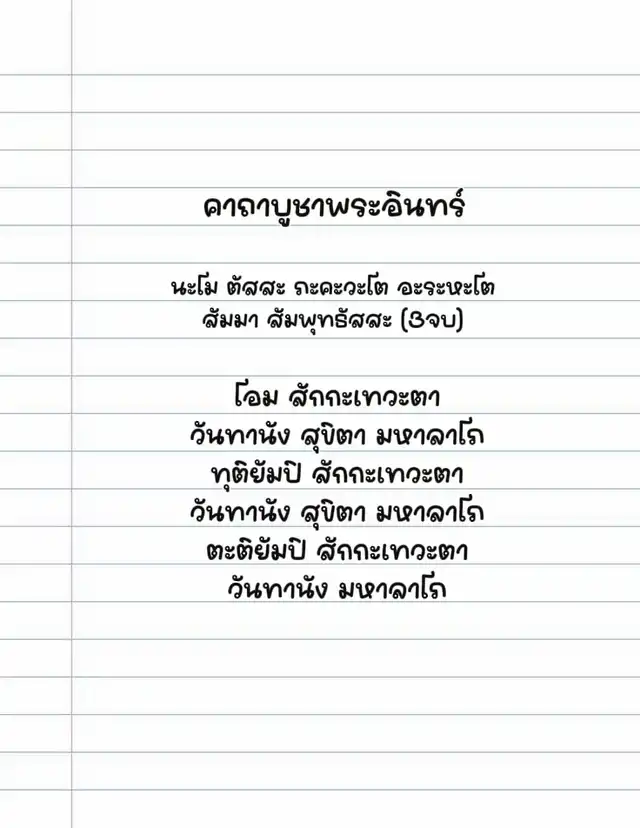 คาถาบูชาพระอินทร์
นะโม ตัสสะ ภะคะวะโต อะระหะโต
สัมมา สัมพุทธัสสะ (3จบ)
โอม สักกะเทวะตา
วันทานัง สุขิตา มหาลาโภ
ทุติยัมปิ สักกะเทวะตา
วันทานัง สุขิตา มหาลาโภ
ตะติยัมปิ สักกะเทวะตา
วันทานัง มหาลาโภ